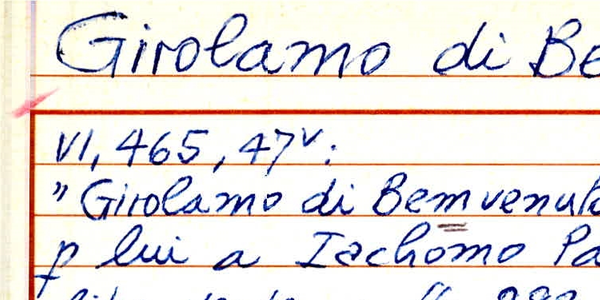 Girolamo di Be
VI, 465, 47v:
"Girolamo di Bemvenuto
p lui a Iachomo Pa